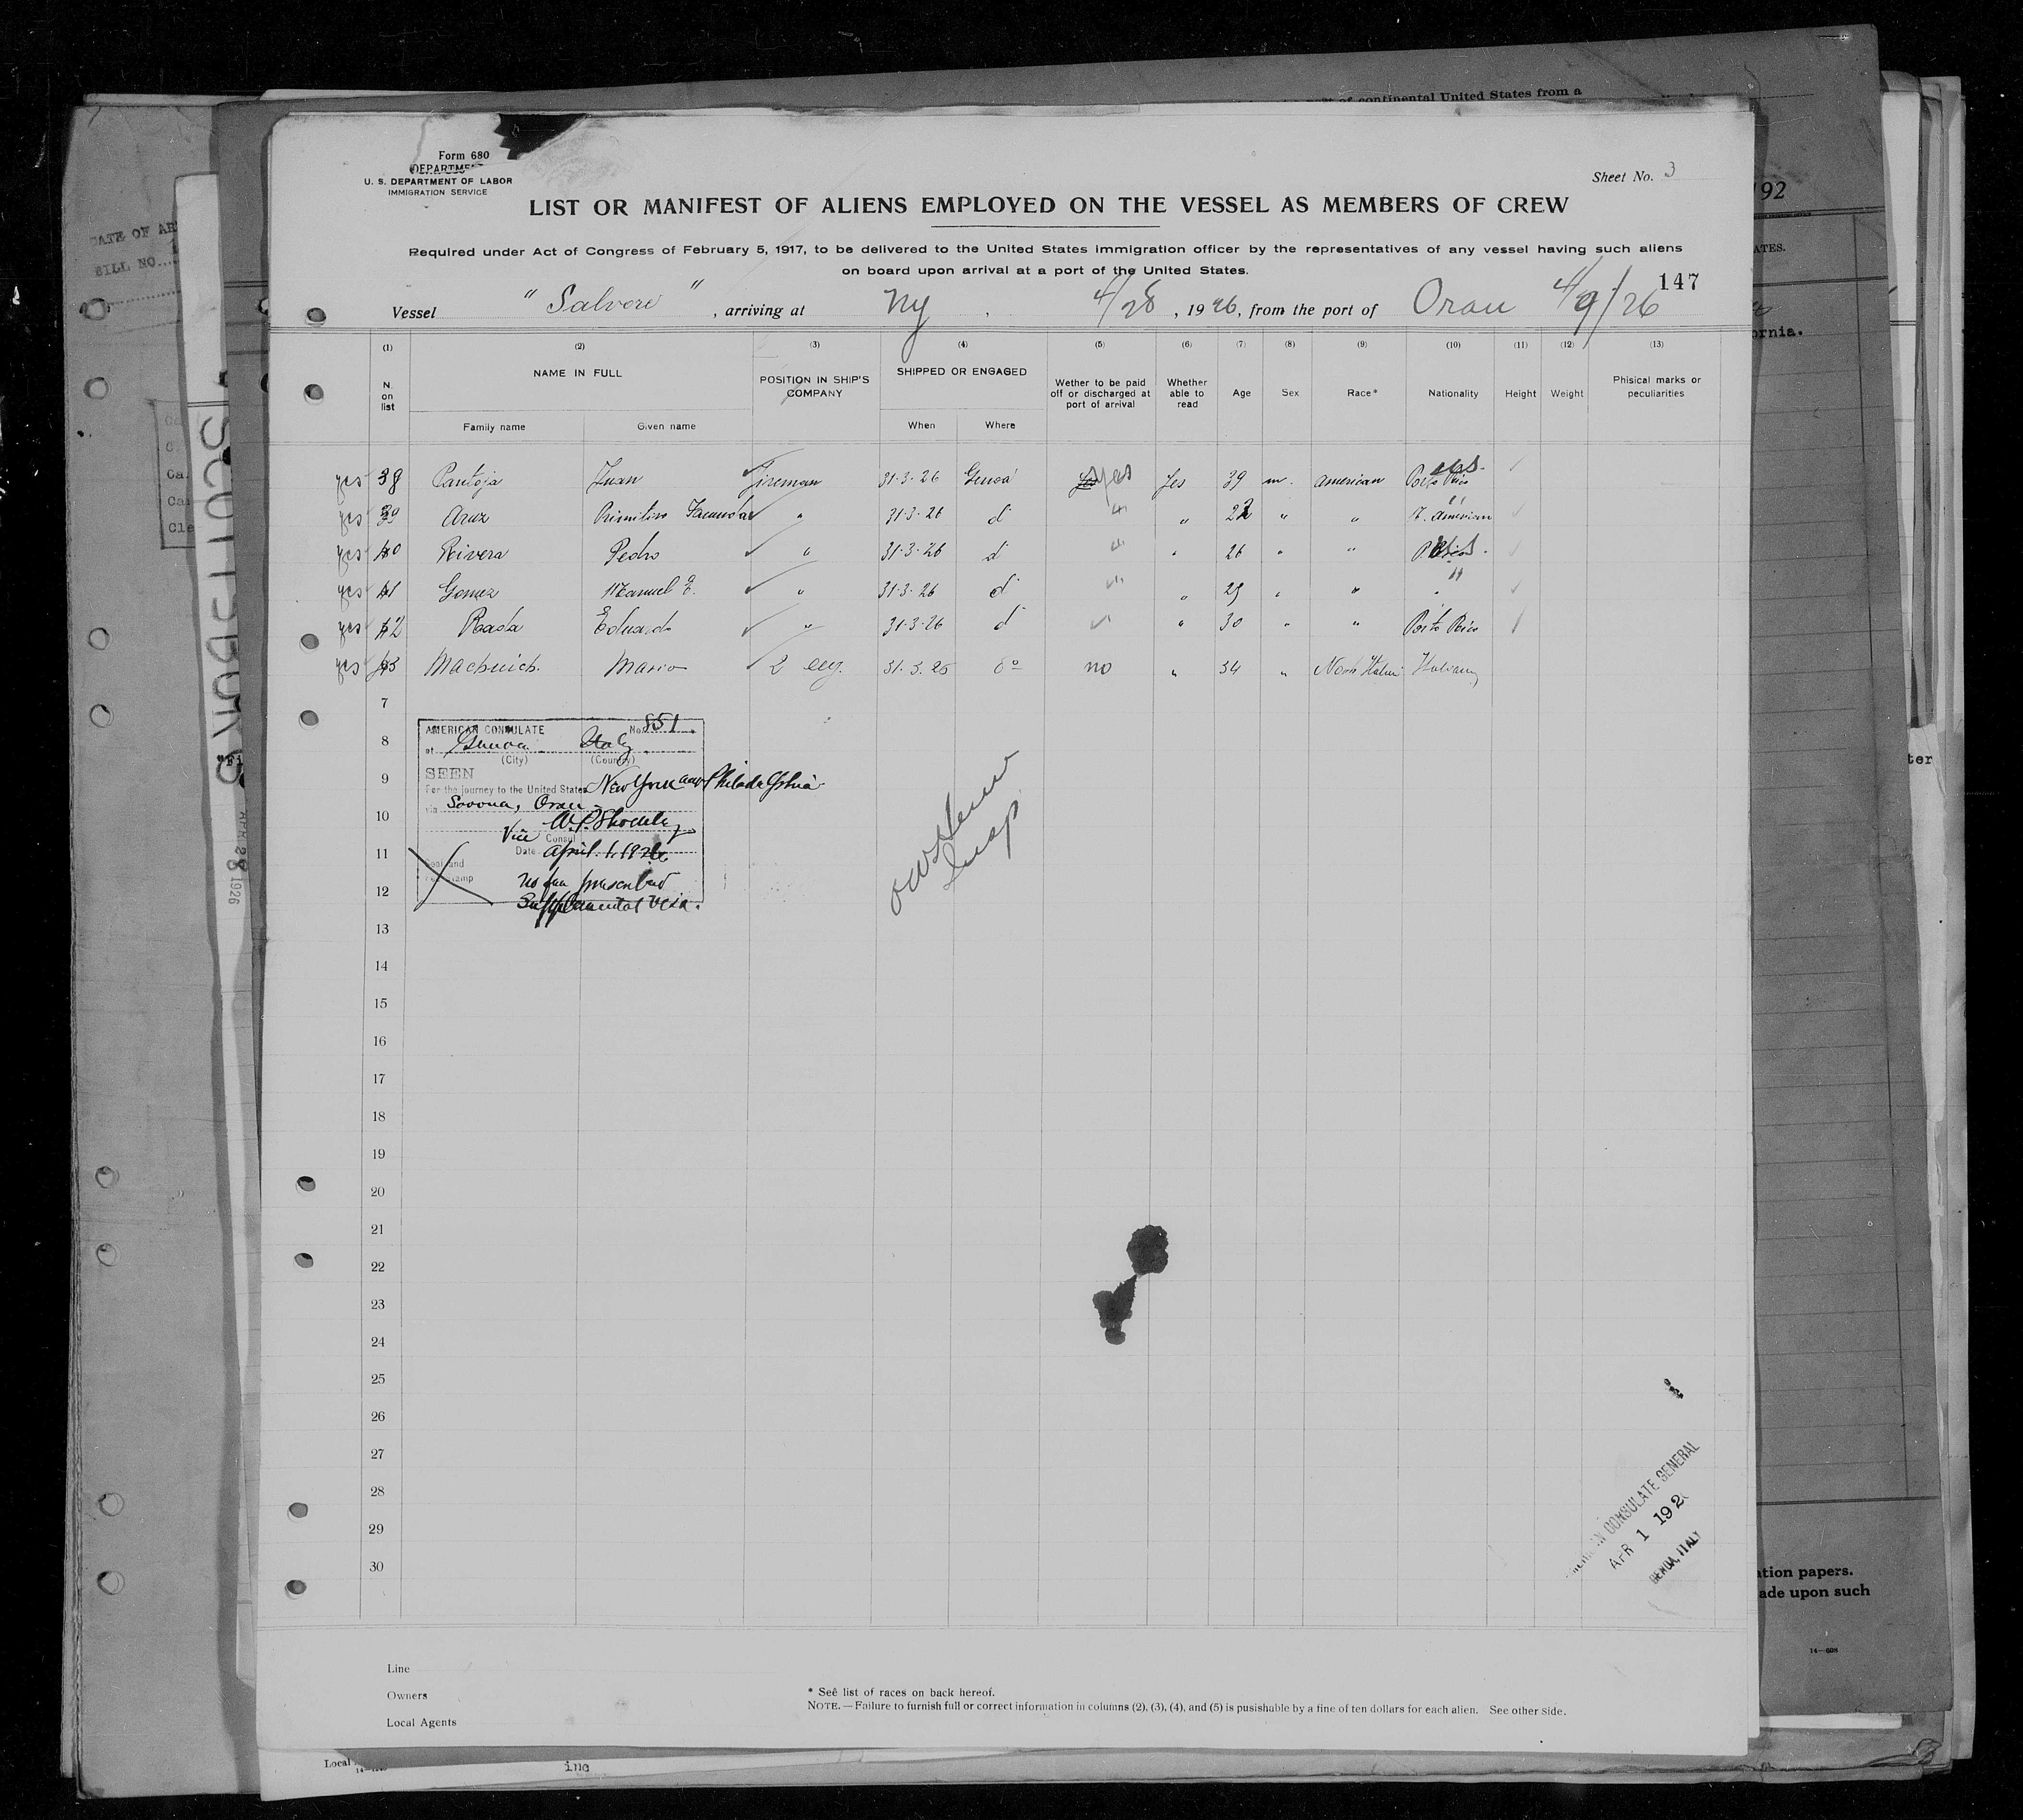 part of continental United States from a
Form 680
DEPARTMENT
U. S. DEPARTMENT OF LABOR
IMMIGRATION SERVICE
Sheet No. 3
LIST OR MANIFEST OF ALIENS EMPLOYED ON THE VESSEL AS MEMBERS OF CREW
Required under Act of Congress of February 5, 1917, to be delivered to the United States immigration officer by the representatives of any vessel having such aliens
on board upon arrival at a port of the United States.
147
Vessel "Salvore", arriving at Ny, 4/28, 1926, from the port of Oran 4/9/26
(1) (2) (3) (4) (5) (6) (7) (8) (9) (10) (11) (12) (13)
N. on list NAME IN FULL POSITION IN SHIP'S COMPANY SHIPPED OR ENGAGED Wether to be paid off or discharged at port of arrival Whether able to read Age Sex Race* Nationality Height Weight Phisical marks or peculiarities
Family name Given name When Where
yes 38 Pantoja Juan Fireman 31-3-26 Genoa yes Yes 39 m. American Porto Rico
yes 39 Aruz Primitivo Facundo " 31-3-26 d " " 22 " " N. American
yes 40 Rivera Pedro " 31-3-26 d " " 26 " "
yes 41 Gomez Manuel E. " 31-3-26 d " " 29 " " "
yes 42 Rada Eduardo " 31-3-26 d " " 30 " " Porto Rico
yes 43 Machnich. Mario 2 eng. 31.3.26 do no " 34 " North Italian Italian
7
8
9
10
11
12
13
14
15
16
17
18
19
20
21
22
23
24
25
26
27
28
29
30
AMERICAN CONSULATE No. 851
at Genoa Italy
(City) (Country)
SEEN
For the journey to the United States New York and Philadelphia
via Savona, Oran
Vice Consul
Date April 1, 1926
Seal and
Fee stamp
No fee prescribed
Supplemental Visa.
Insp
CONSULATE GENERAL
APR 1 192
GENOA, ITALY
Line
Owners
Local Agents
* Seê list of races on back hereof.
NOTE. — Failure to furnish full or correct information in columns (2), (3), (4), and (5) is pusishable by a fine of ten dollars for each alien. See other side.
192
ATES.
ornia.
ter
ation papers.
ade upon such
14—698
DATE OF AR
BILL NO.
APR 28 1926
Local
inc